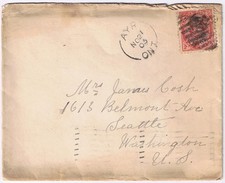 AYR
ONT
Mrs James Cosh
1613 Belmont Ave
Seattle
Washington
U.S.